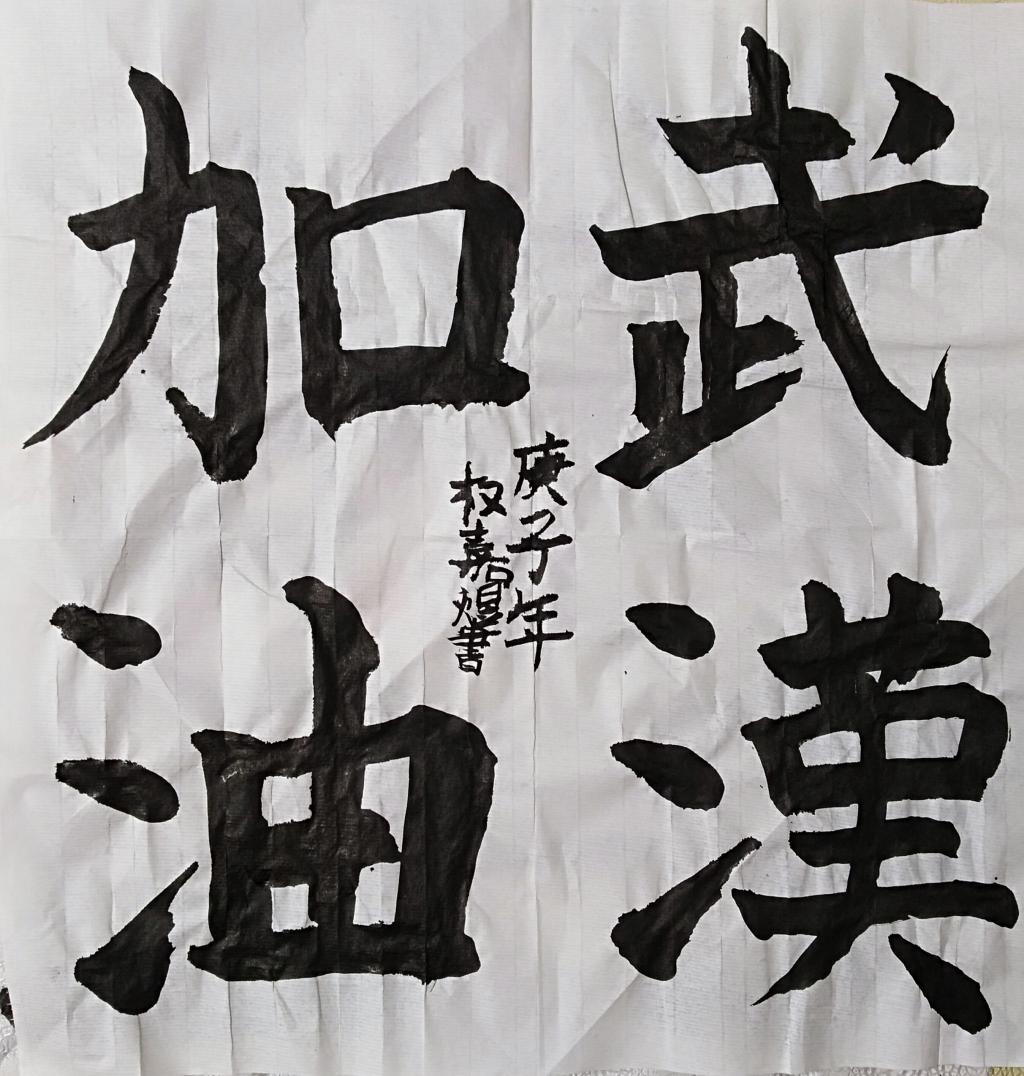 武漢
加油
庚子年
权嘉焜書